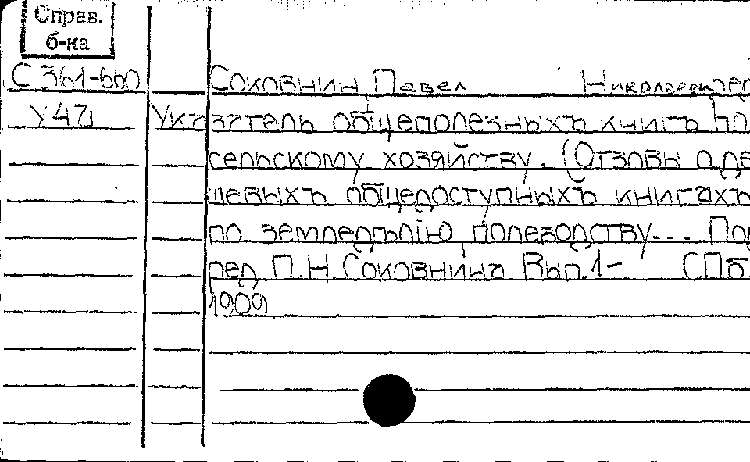 Справ.
б-ка
С 361-660
Соковнин, Павел Николаевич, ред
У 47
Указатель общеполезныхъ книгъ по
сельскому хозяйству. (Отзовы о де
шевыхъ общедоступныхъ книгахъ
по земледѣлію полеводству... Под
ред. П.Н. Соковнина Вып.1- СПб
1909